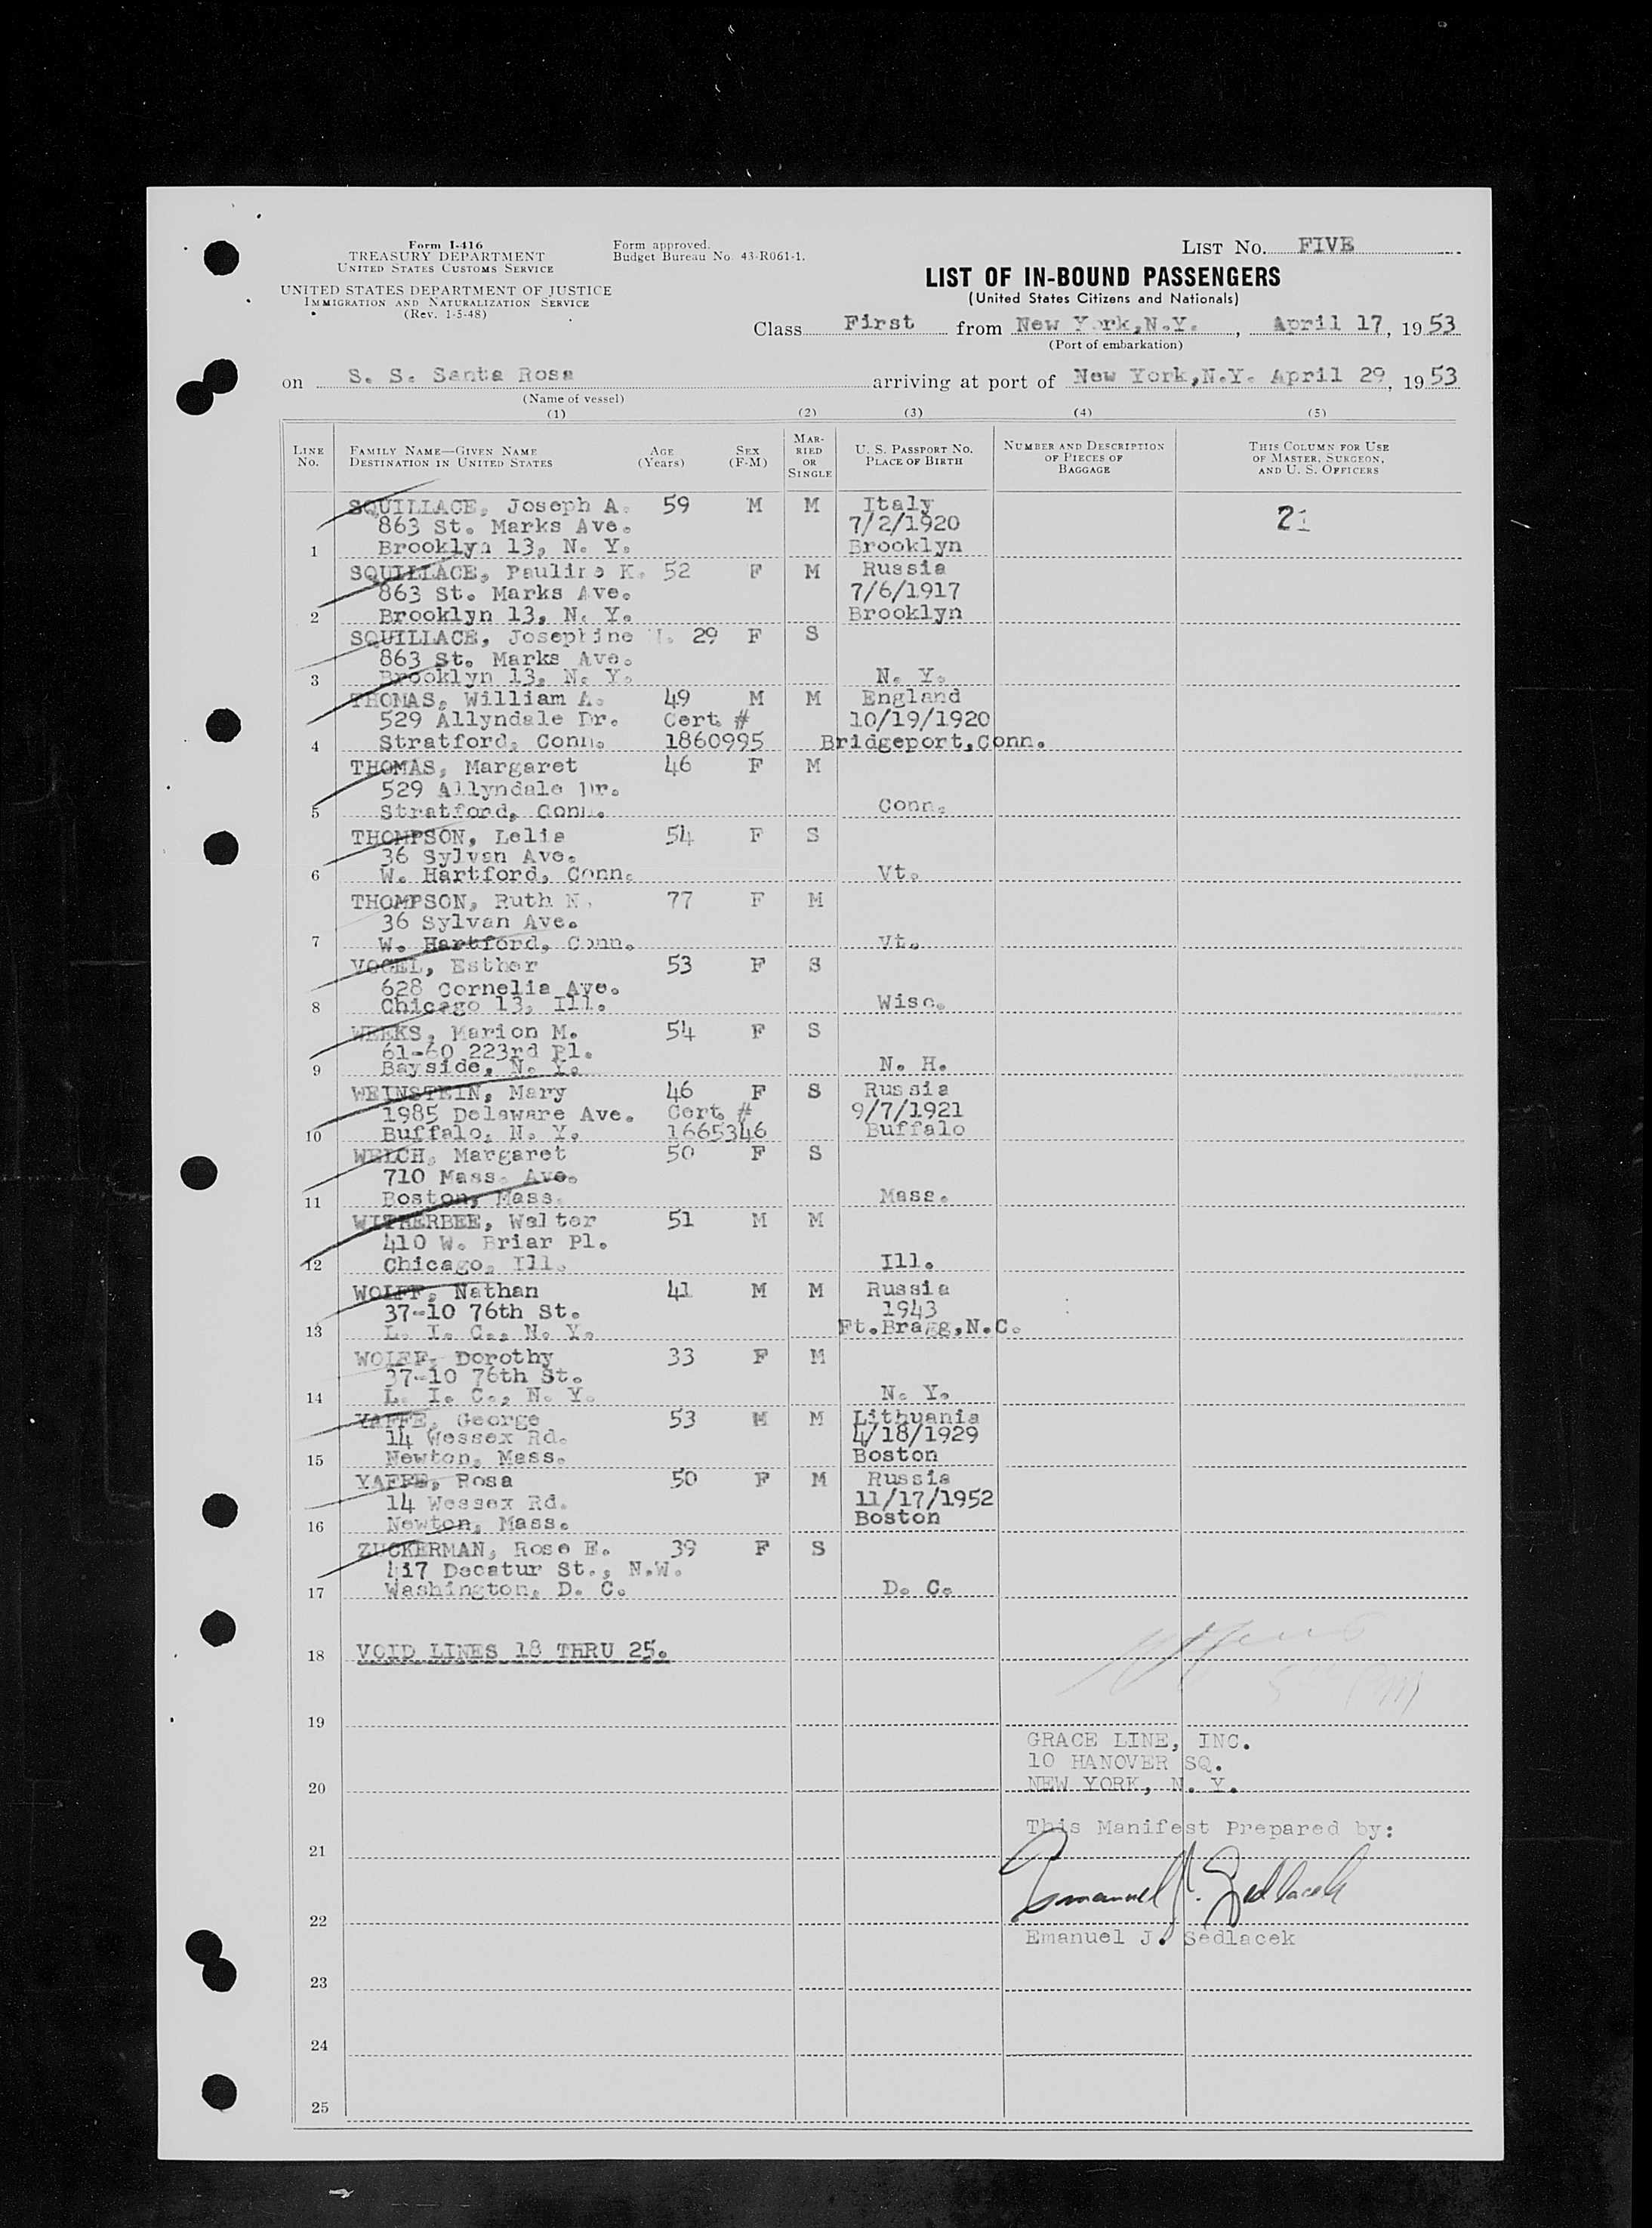 Form I-416
TREASURY DEPARTMENT
UNITED STATES CUSTOMS SERVICE
UNITED STATES DEPARTMENT OF JUSTICE
IMMIGRATION AND NATURALIZATION SERVICE
(Rev. 1-5-48)
Form approved.
Budget Bureau No. 43-R061-1.
LIST No. FIVE
LIST OF IN-BOUND PASSENGERS
(United States Citizens and Nationals)
Class First from New York,N.Y., April 17, 1953
(Port of embarkation)
on S. S. Santa Rosa arriving at port of New York,N.Y. April 29, 1953
(Name of vessel)
(1) (2) (3) (4) (5)
LINE No. FAMILY NAME—GIVEN NAME DESTINATION IN UNITED STATES AGE (Years) SEX (F-M) MARRIED OR SINGLE U. S. PASSPORT No. PLACE OF BIRTH NUMBER AND DESCRIPTION OF PIECES OF BAGGAGE THIS COLUMN FOR USE OF MASTER, SURGEON, AND U. S. OFFICERS
SQUILLACE, Joseph A. 59 M M Italy
863 St. Marks Ave. 7/2/1920 21
1 Brooklyn 13, N. Y. Brooklyn
SQUILLACE, Pauline K. 52 F M Russia
863 St. Marks Ave. 7/6/1917
2 Brooklyn 13, N. Y. Brooklyn
SQUILLACE, Josephine 29 F S
863 St. Marks Ave.
3 Brooklyn 13, N. Y. N. Y.
THOMAS, William A. 49 M M England
529 Allyndale Dr. Cert. # 10/19/1920
4 Stratford, Conn. 1860995 Bridgeport,Conn.
THOMAS, Margaret 46 F M
529 Allyndale Dr.
5 Stratford, Conn. Conn.
THOMPSON, Lelia 54 F S
36 Sylvan Ave.
6 W. Hartford, Conn. Vt.
THOMPSON, Ruth N. 77 F M
36 Sylvan Ave.
7 W. Hartford, Conn. Vt.
VOGEL, Esther 53 F S
628 Cornelia Ave.
8 Chicago 13, Ill. Wisc.
WEEKS, Marion M. 54 F S
61-60 223rd Pl.
9 Bayside, N. Y. N. H.
WEINSTEIN, Mary 46 F S Russia
1985 Delaware Ave. Cert. # 9/7/1921
10 Buffalo, N. Y. 1665346 Buffalo
WELCH, Margaret 50 F S
710 Mass. Ave.
11 Boston, Mass. Mass.
WITHERBEE, Walter 51 M M
410 W. Briar Pl.
12 Chicago, Ill. Ill.
WOLFF, Nathan 41 M M Russia
37-10 76th St. 1943
13 L. I. C., N. Y. Ft.Bragg,N.C.
WOLFF, Dorothy 33 F M
37-10 76th St.
14 L. I. C., N. Y. N. Y.
YAFFE, George 53 M M Lithuania
14 Wessex Rd. 4/18/1929
15 Newton, Mass. Boston
YAFFE, Rosa 50 F M Russia
14 Wessex Rd. 11/17/1952
16 Newton, Mass. Boston
ZUCKERMAN, Rose E. 39 F S
417 Decatur St., N.W.
17 Washington, D. C. D. C.
18 VOID LINES 18 THRU 25.
19
GRACE LINE, INC.
10 HANOVER SQ.
20 NEW YORK, N. Y.
This Manifest Prepared by:
21
Emanuel J. Sedlacek
22
Emanuel J. Sedlacek
23
24
25